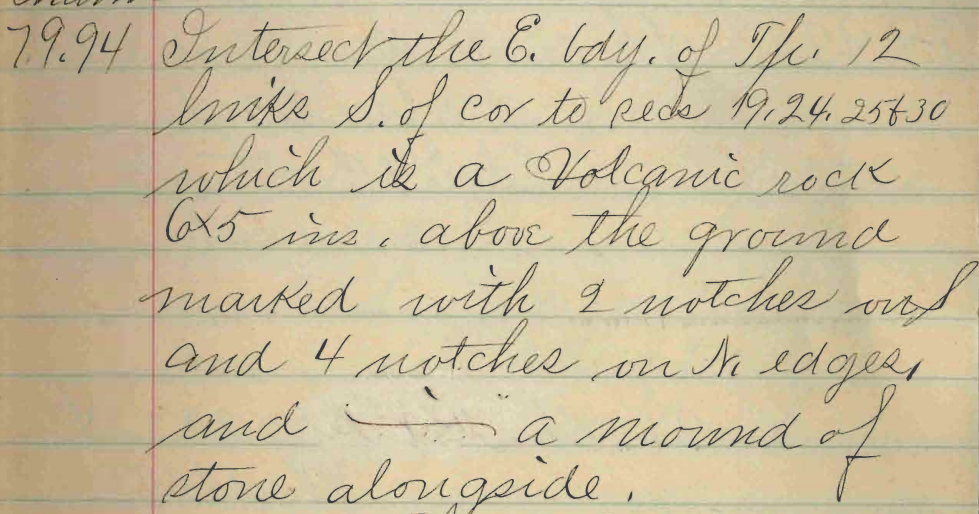 79.94 Intersect the E. bdy. of Tp. 12
links S. of cor to secs 19.24.25&30
which is a Volcanic rock
6x5 ins. above the ground
marked with 2 notches on S
and 4 notches on N. edges.
and a mound of
stone alongside.